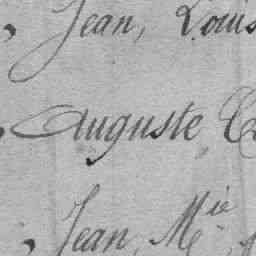 , Jean, Louis
, Auguste
, Jean, Mie